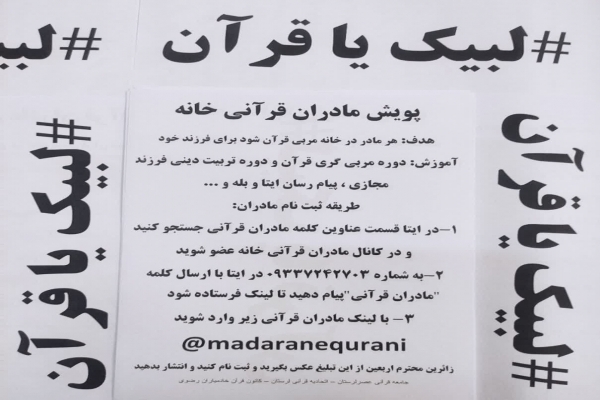 #لبیک یا قرآن
#لبی
پویش مادران قرآنی خانه
هدف: هر مادر در خانه مربی قرآن شود برای فرزند خود
آموزش: دوره مربی گری قرآن و دوره تربیت دینی فرزند
مجازی ، پیام رسان ایتا و بله و ...
طریقه ثبت نام مادران:
۱–در ایتا قسمت عناوین کلمه مادران قرآنی جستجو کنید
و در کانال مادران قرآنی خانه عضو شوید
۲–به شماره ۰۹۳۳۷۲۴۲۷۰۳ در ایتا با ارسال کلمه
"مادران قرآنی"پیام دهید تا لینک فرستاده شود
۳– با لینک مادران قرآنی زیر وارد شوید
@madaranequrani
زائرین محترم اربعین از این تبلیغ عکس بگیرید و ثبت نام کنید و انتشار بدهید
جامعه قرآنی عصر لرستان – اتحادیه قرآنی لرستان – کانون قرآن خامسیاران رضوی
#لبیک یا قرآن
#لبیک یا قرآن